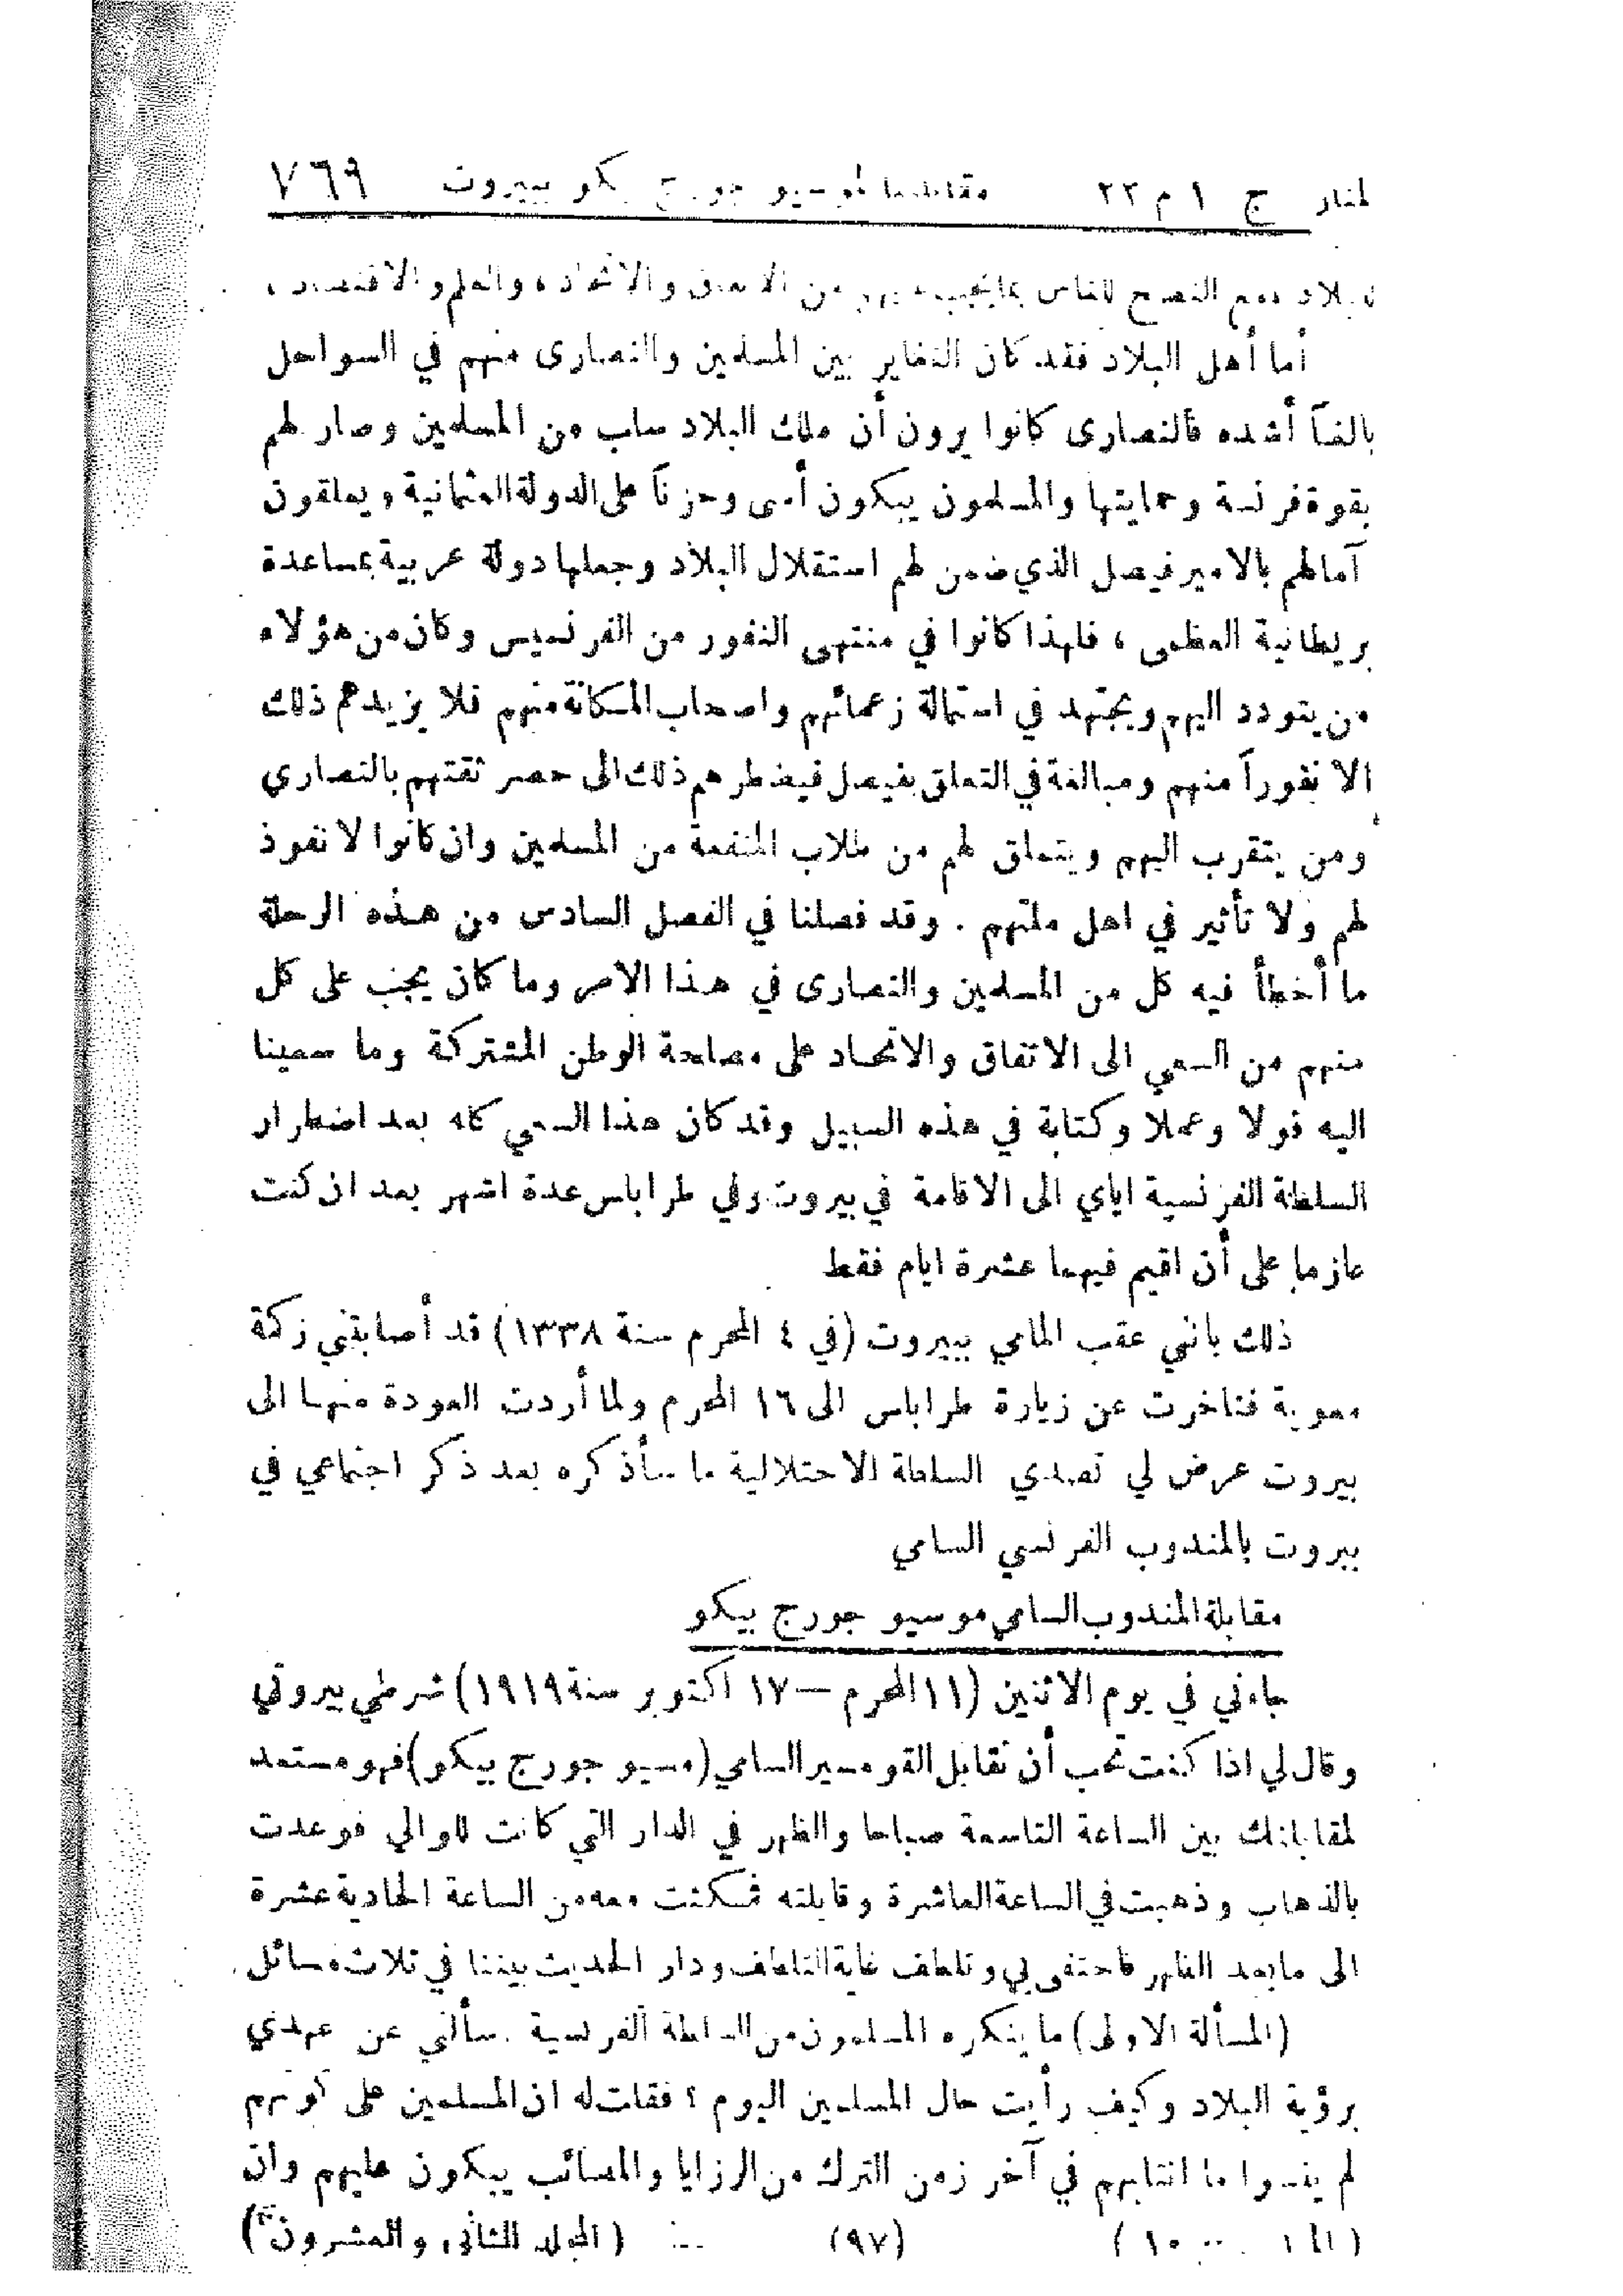 لمنار ج ١ م ٢٢ مقابلتنا لموسيو جورج بيكو ببيروت ٧٦٩
للبلاد مع النصح للناس بما يجب عليهم من الاتفاق والاتحاد، والعلم والاقتصاد،
أما أهل البلاد فقد كان التغاير بين المسلمين والنصارى منهم في السواحل
بالغاً أشده فالنصارى كانوا يرون أن ملك البلاد سلب من المسلمين وصار لهم
بقوة فرنسة وحمايتها والمسلمون يبكون أسى وحزناً على الدولة العثمانية ويعلقون
آمالهم بالامير فيصل الذي ضمن لهم استقلال البلاد وجعلها دولة عربية بمساعدة
بريطانية العظمى، فلهذا كانوا في منتهى النفور من الفرنسيس وكان من هؤلاء
من يتودد اليهم ويجتهد في استمالة زعمائهم واصحاب المكانة منهم فلا يزيدهم ذلك
الا نفوراً منهم ومبالغة في التعلق بفيصل فيضطرهم ذلك الى حصر ثقتهم بالنصارى
ومن يتقرب اليهم ويتملق لهم من طلاب المنفعة من المسلمين وان كانوا لا نفوذ
لهم ولا تأثير في اهل ملتهم . وقد فصلنا في الفصل السادس من هذه الرحلة
ما أخطأ فيه كل من المسلمين والنصارى في هذا الامر وما كان يجب على كل
منهم من السعي الى الاتفاق والاتحاد على مصلحة الوطن المشتركة وما سعينا
اليه قولا وعملا وكتابة في هذه السبيل وقد كان هذا السعي كله بعد اضطرار
السلطة الفرنسية اياي الى الاقامة في بيروت وفي طرابلس عدة اشهر بعد ان كنت
عازما على أن اقيم فيهما عشرة ايام فقط
ذلك بانني عقب المامي ببيروت (في ٤ المحرم سنة ١٣٣٨) قد أصابتني زكمة
معوية فتاخرت عن زيارة طرابلس الى ١٦ المحرم ولما أردت العودة منها الى
بيروت عرض لي تصدي السلطة الاحتلالية ما سأذكره بعد ذكر اجتماعي في
بيروت بالمندوب الفرنسي السامي
مقابلة المندوب السامي موسيو جورج بيكو
جاءني في يوم الاثنين (١١ المحرم — ١٧ اكتوبر سنة ١٩١٩) شرطي بيروتي
وقال لي اذا كنت تحب أن تقابل القومسير السامي (مسيو جورج بيكو) فهو مستعد
لمقابلتك بين الساعة التاسعة صباحا والظهر في الدار التي كانت للوالي فوعدت
بالذهاب وذهبت في الساعة العاشرة وقابلته فمكثت معه من الساعة الحادية عشرة
الى ما بعد الظهر فاحتفى بي وتلطف غاية التلطف ودار الحديث بيننا في ثلاث مسائل
(المسألة الاولى) ما ينكره المسلمون من السلطة الفرنسية . سألني عن عهدي
برؤية البلاد وكيف رأيت حال المسلمين اليوم ؟ فقلت له ان المسلمين على كونهم
لم ينسوا ما انتابهم في آخر زمن الترك من الرزايا والمصائب يبكون عليهم وان
( ١٠ ) (٩٧) (المجلد الثاني والعشرون)